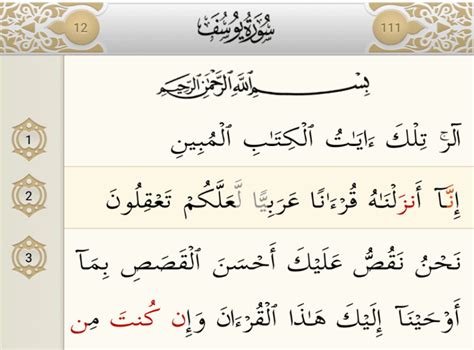 12 سُورَةُ يُوسُفَ 111
بِسْمِ ٱللَّهِ ٱلرَّحْمَٰنِ ٱلرَّحِيمِ
1 الٓرۚ تِلۡكَ ءَايَٰتُ ٱلۡكِتَٰبِ ٱلۡمُبِينِ
2 إِنَّآ أَنزَلۡنَٰهُ قُرۡءَٰنًا عَرَبِيّٗا لَّعَلَّكُمۡ تَعۡقِلُونَ
3 نَحۡنُ نَقُصُّ عَلَيۡكَ أَحۡسَنَ ٱلۡقَصَصِ بِمَآ
أَوۡحَيۡنَآ إِلَيۡكَ هَٰذَا ٱلۡقُرۡءَانَ وَإِن كُنتَ مِن